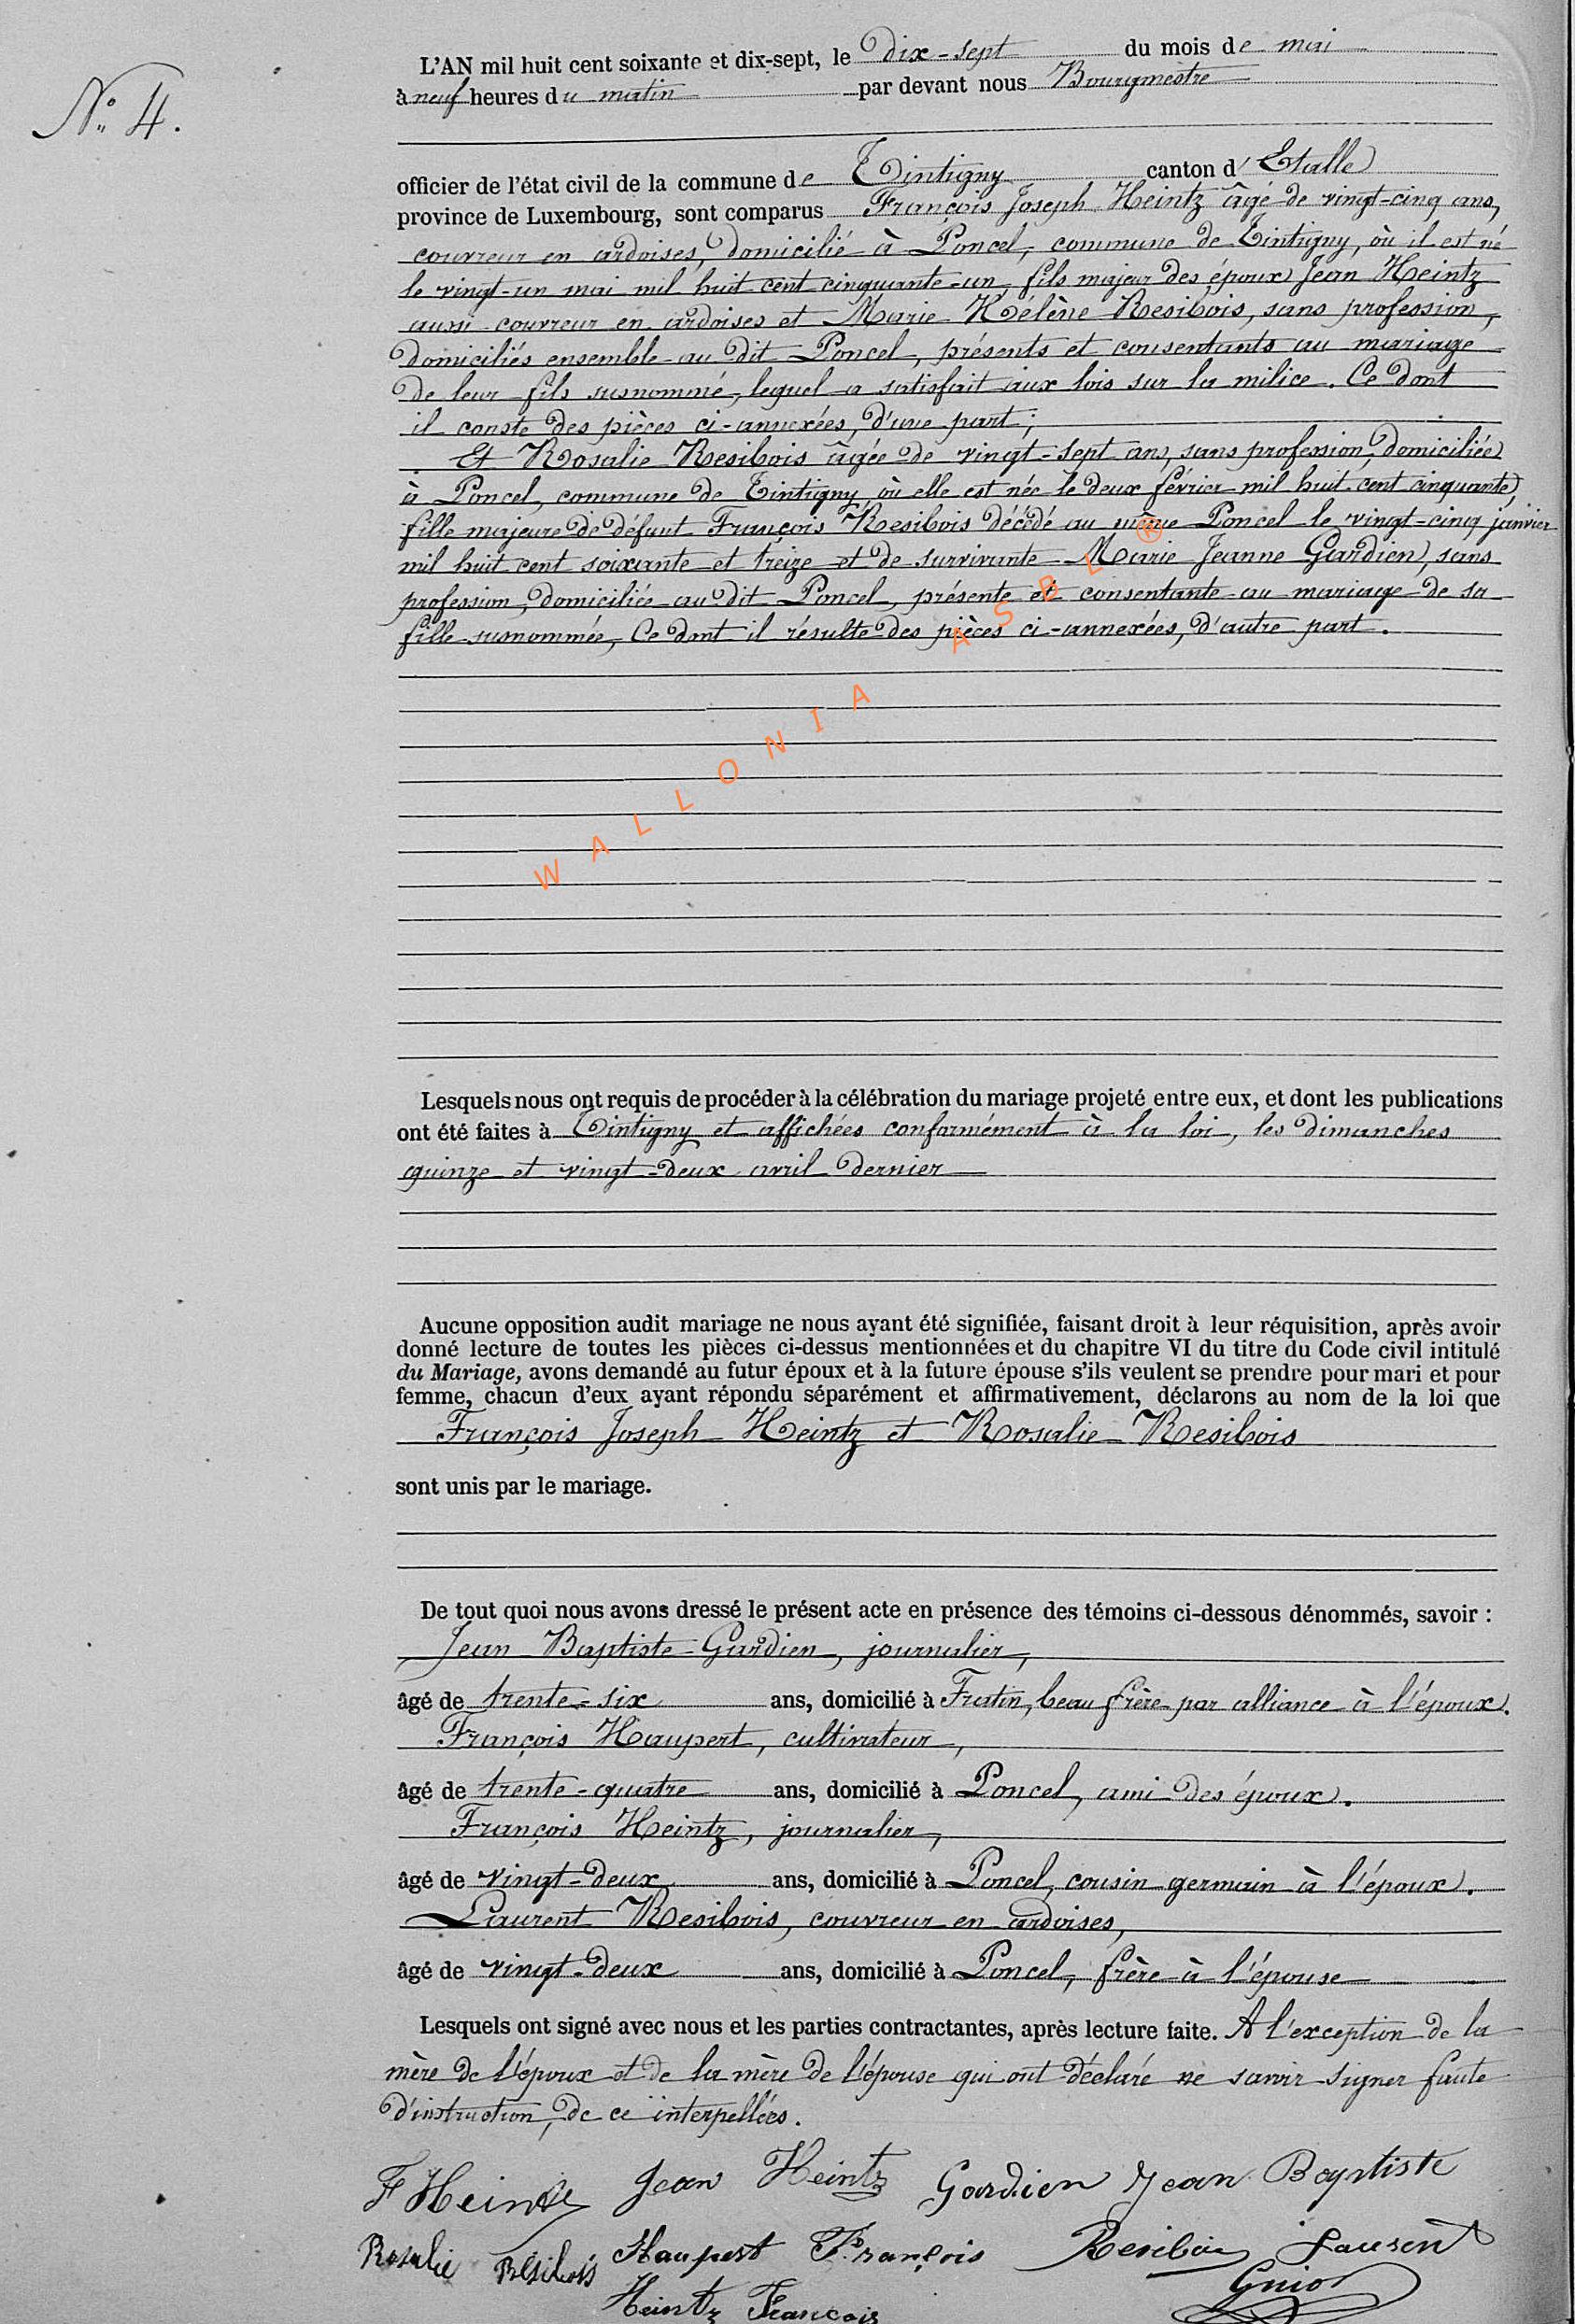 N° 4.
L'AN mil huit cent soixante et dix-sept, le Dix-sept du mois de mai
à neuf heures du matin par devant nous Bourgmestre
officier de l'état civil de la commune de Tintigny canton d'Etalle
province de Luxembourg, sont comparus François Joseph Heintz âgé de vingt-cinq ans,
couvreur en ardoises, domicilié à Poncel, commune de Tintigny, où il est né
le vingt-un mai mil huit cent cinquante-un, fils majeur des époux Jean Heintz
aussi couvreur en ardoises et Marie Hélène Resibois, sans profession,
domiciliés ensemble au dit Poncel, présents et consentants au mariage
de leur fils susnommé, lequel a satisfait aux lois sur la milice. Ce dont
il conste des pièces ci-annexées, d'une part;
Et Rosalie Resibois âgée de vingt-sept ans, sans profession, domiciliée
à Poncel, commune de Tintigny, où elle est née le deux février mil huit cent cinquante,
fille majeure de défunt François Resibois décédé au même Poncel le vingt-cinq janvier
mil huit cent soixante et treize et de survivante Marie Jeanne Gardien, sans
profession, domiciliée au dit Poncel, présente et consentante au mariage de sa
fille susnommée, Ce dont il résulte des pièces ci-annexées, d'autre part.
WALLONIA ASBL ®
Lesquels nous ont requis de procéder à la célébration du mariage projeté entre eux, et dont les publications
ont été faites à Tintigny et affichées conformément à la loi, les dimanches
quinze et vingt-deux avril dernier
Aucune opposition audit mariage ne nous ayant été signifiée, faisant droit à leur réquisition, après avoir
donné lecture de toutes les pièces ci-dessus mentionnées et du chapitre VI du titre du Code civil intitulé
du Mariage, avons demandé au futur époux et à la future épouse s'ils veulent se prendre pour mari et pour
femme, chacun d'eux ayant répondu séparément et affirmativement, déclarons au nom de la loi que
François Joseph Heintz et Rosalie Resibois
sont unis par le mariage.
De tout quoi nous avons dressé le présent acte en présence des témoins ci-dessous dénommés, savoir :
Jean Baptiste Gardien, journalier,
âgé de trente-six ans, domicilié à Fratin, beau frère par alliance à l'époux.
François Haupert, cultivateur,
âgé de trente-quatre ans, domicilié à Poncel, ami des époux.
François Heintz, journalier,
âgé de vingt-deux ans, domicilié à Poncel, cousin germain à l'époux.
Laurent Resibois, couvreur en ardoises,
âgé de vingt-deux ans, domicilié à Poncel, frère à l'épouse
Lesquels ont signé avec nous et les parties contractantes, après lecture faite. A l'exception de la
mère de l'époux et de la mère de l'épouse qui ont déclaré ne savoir signer faute
d'instruction, de ce interpellées.
F Heintz Jean Heintz Gardien Jean Baptiste
Rosalie Résibois Haupert François Resibois Laurent
Heintz François Guiot